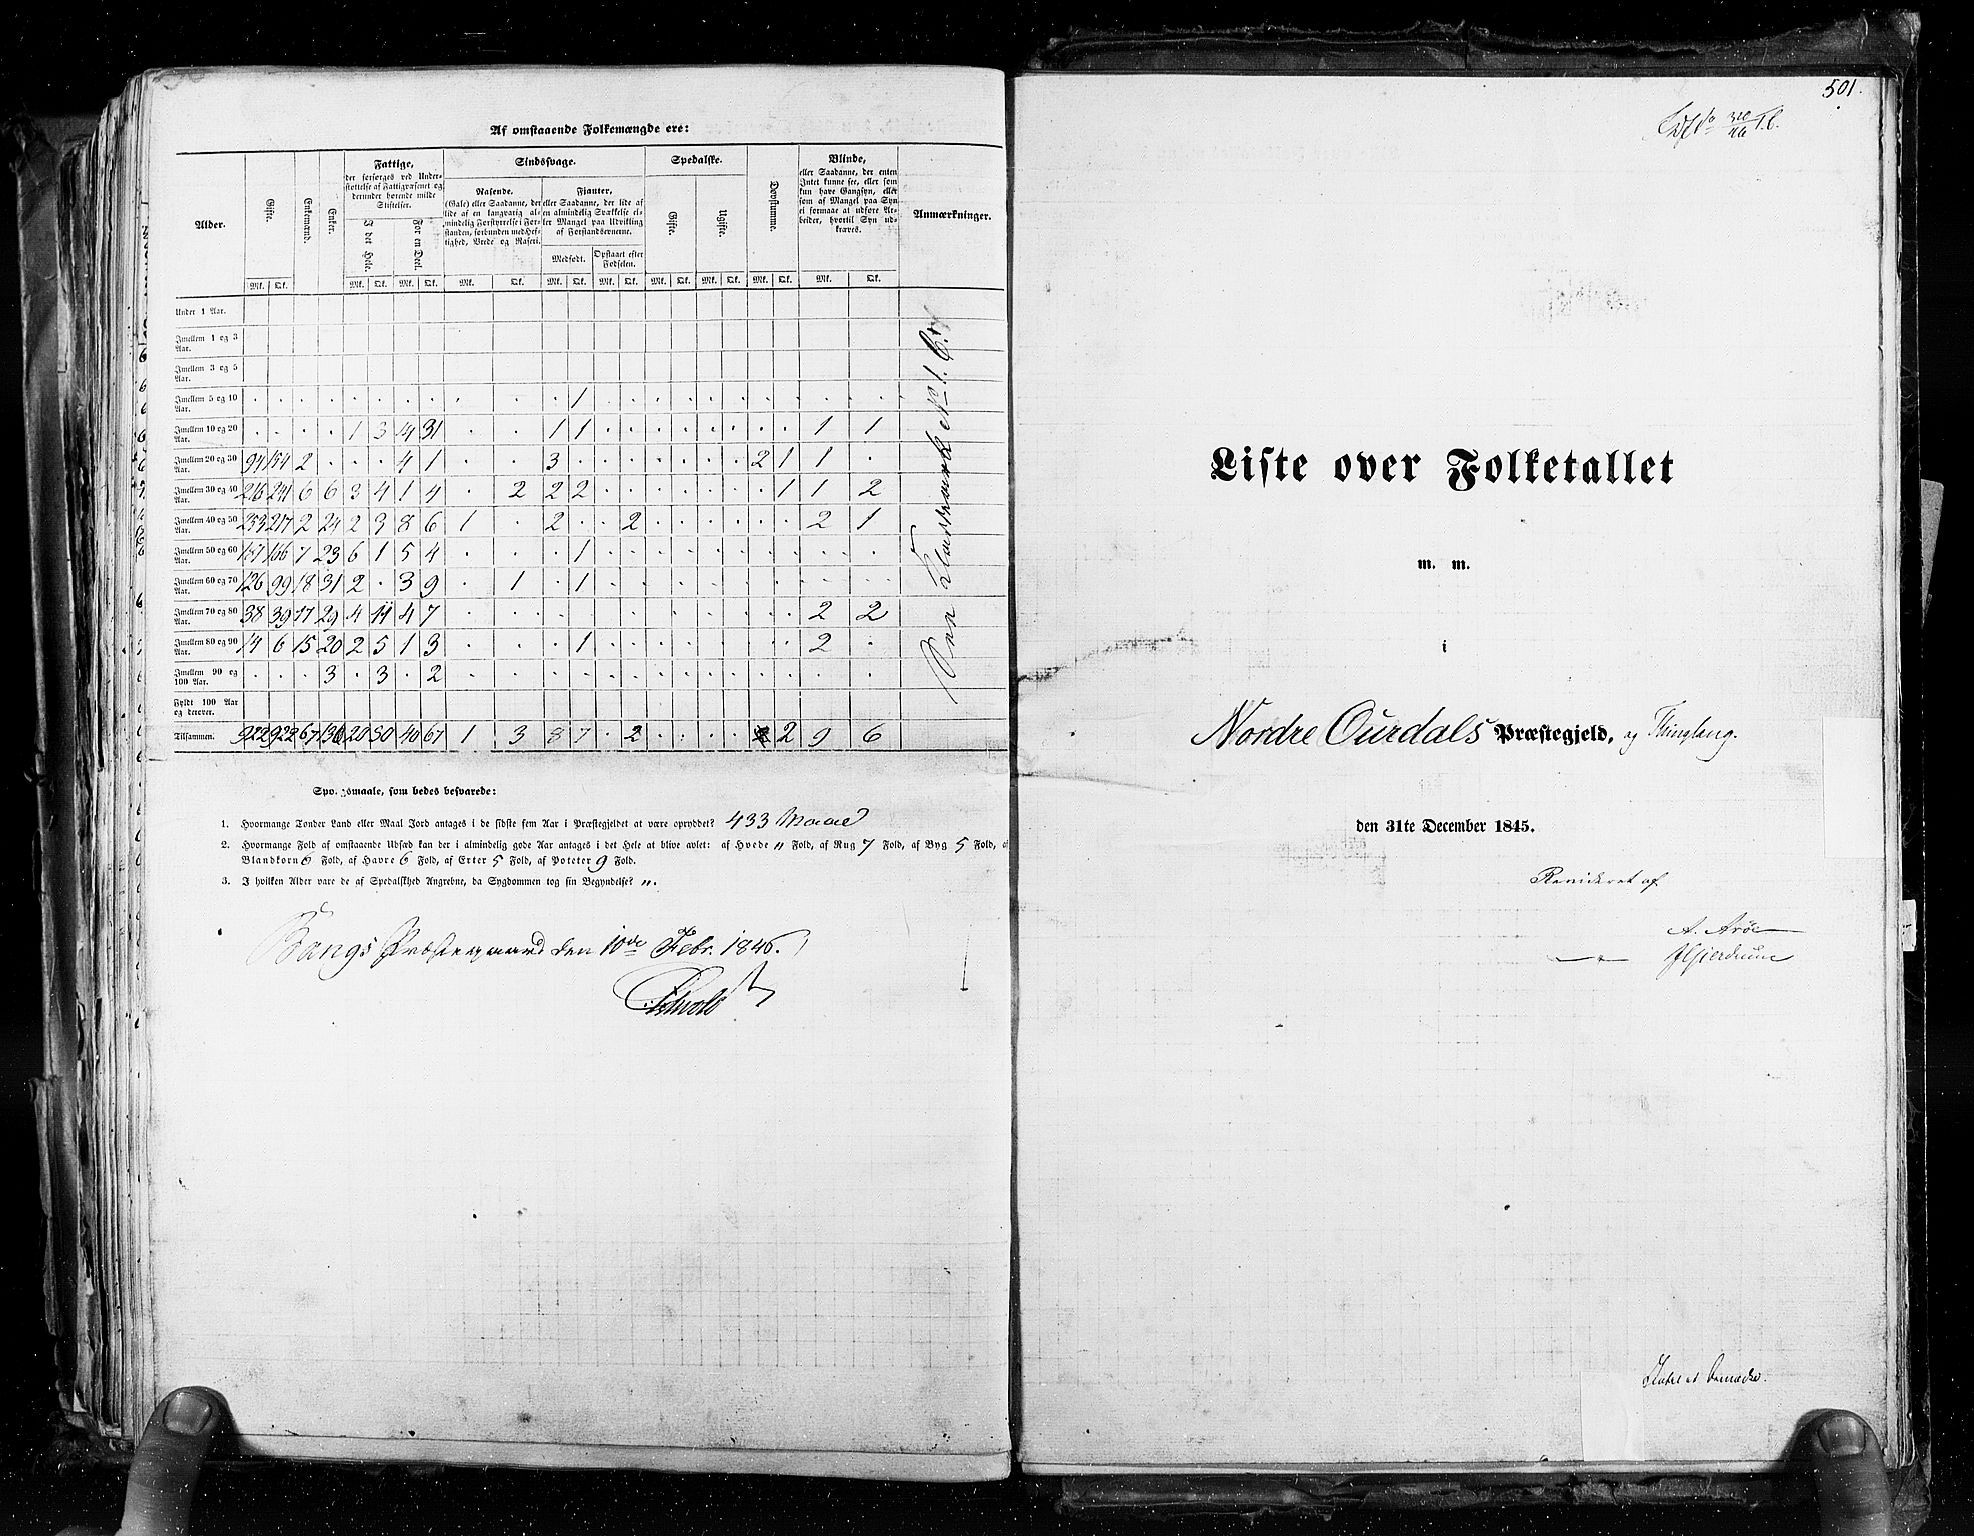 Af omstaaende Folkemængde ere:
Alder.
Gifte.
Enkemænd.
Enker.
Fattige,
der forsørges ved Under-
støttelse af Fattigvæsenet og
derunder hørende milde
Stiftelser.
I det Hele.
For en Deel.
Sindssvage.
Rasende.
(Gale) eller Saadanne, der
lide af en langvarig al-
mindelig Forstyrrelse i For-
standen, forbunden med Hef-
tighed, Vrede og Raseri.
Fjanter,
eller Saadanne, der lide af
en almindelig Svækkelse el-
ler Mangel paa Udvikling
af Forstandsevnerne.
Medfødt.
Opstaaet efter
Fødselen.
Spedalske.
Gifte.
Ugifte.
Døvstumme.
Blinde,
eller Saadanne, der enten
Intet kunne see, eller som
kun have Gangsyn, eller
som af Mangel paa Syn
ei formaae at udføre Ar-
beider, hvortil Syn ud-
kræves.
Anmærkninger.
Mk. Qk. Mk. Qk. Mk. Qk. Mk. Qk. Mk. Qk. Mk. Qk. Mk. Qk. Mk. Qk. Mk. Qk. Mk. Qk.
Under 1 Aar.
Imellem 1 og 3 Aar.
Imellem 3 og 5 Aar.
Imellem 5 og 10 Aar. 1
Imellem 10 og 20 Aar. 1 3 14 31 1 1 1 1
Imellem 20 og 30 Aar. 94 154 2 4 1 3 2 1 1
Imellem 30 og 40 Aar. 216 241 6 6 3 4 1 4 2 2 2 1 1 2
Imellem 40 og 50 Aar. 253 217 2 24 2 3 8 6 1 2 2 2 1
Imellem 50 og 60 Aar. 166 7 23 6 1 5 4 1
Imellem 60 og 70 Aar. 126 99 18 31 2 3 9 1 1
Imellem 70 og 80 Aar. 38 39 17 29 4 11 4 7 2 2
Imellem 80 og 90 Aar. 14 6 15 20 2 5 1 3 1 2
Imellem 90 og 100 Aar. 3 3 2
Fyldt 100 Aar og derover.
Tilsammen. 922 922 67 136 20 30 40 67 1 3 8 7 2 2 2 9 6
Spørgsmaale, som bedes besvarede:
1. Hvormange Tønder Land eller Maal Jord antages i de sidste fem Aar i Præstegjeldet at være opryddet? 433 Maal
2. Hvormange Fold af omstaaende Udsæd kan der i almindelig gode Aar antages i det Hele at blive avlet: af Hvede " Fold, af Rug 7 Fold, af Byg 5 Fold, af
Blandkorn 6 Fold, af Havre 6 Fold, af Erter 5 Fold, af Poteter 9 Fold.
3. I hvilken Alder vare de af Spedalskhed Angrebne, da Sygdommen tog sin Begyndelse? ".
Bangs Præstegaard den 10de Febr. 1846.
501.
Liste over Folketallet
m. m.
i
Nordre Ourdals Præstegjeld, og Thinglaug.
den 31te December 1845.
Revideret af
A. Arøe